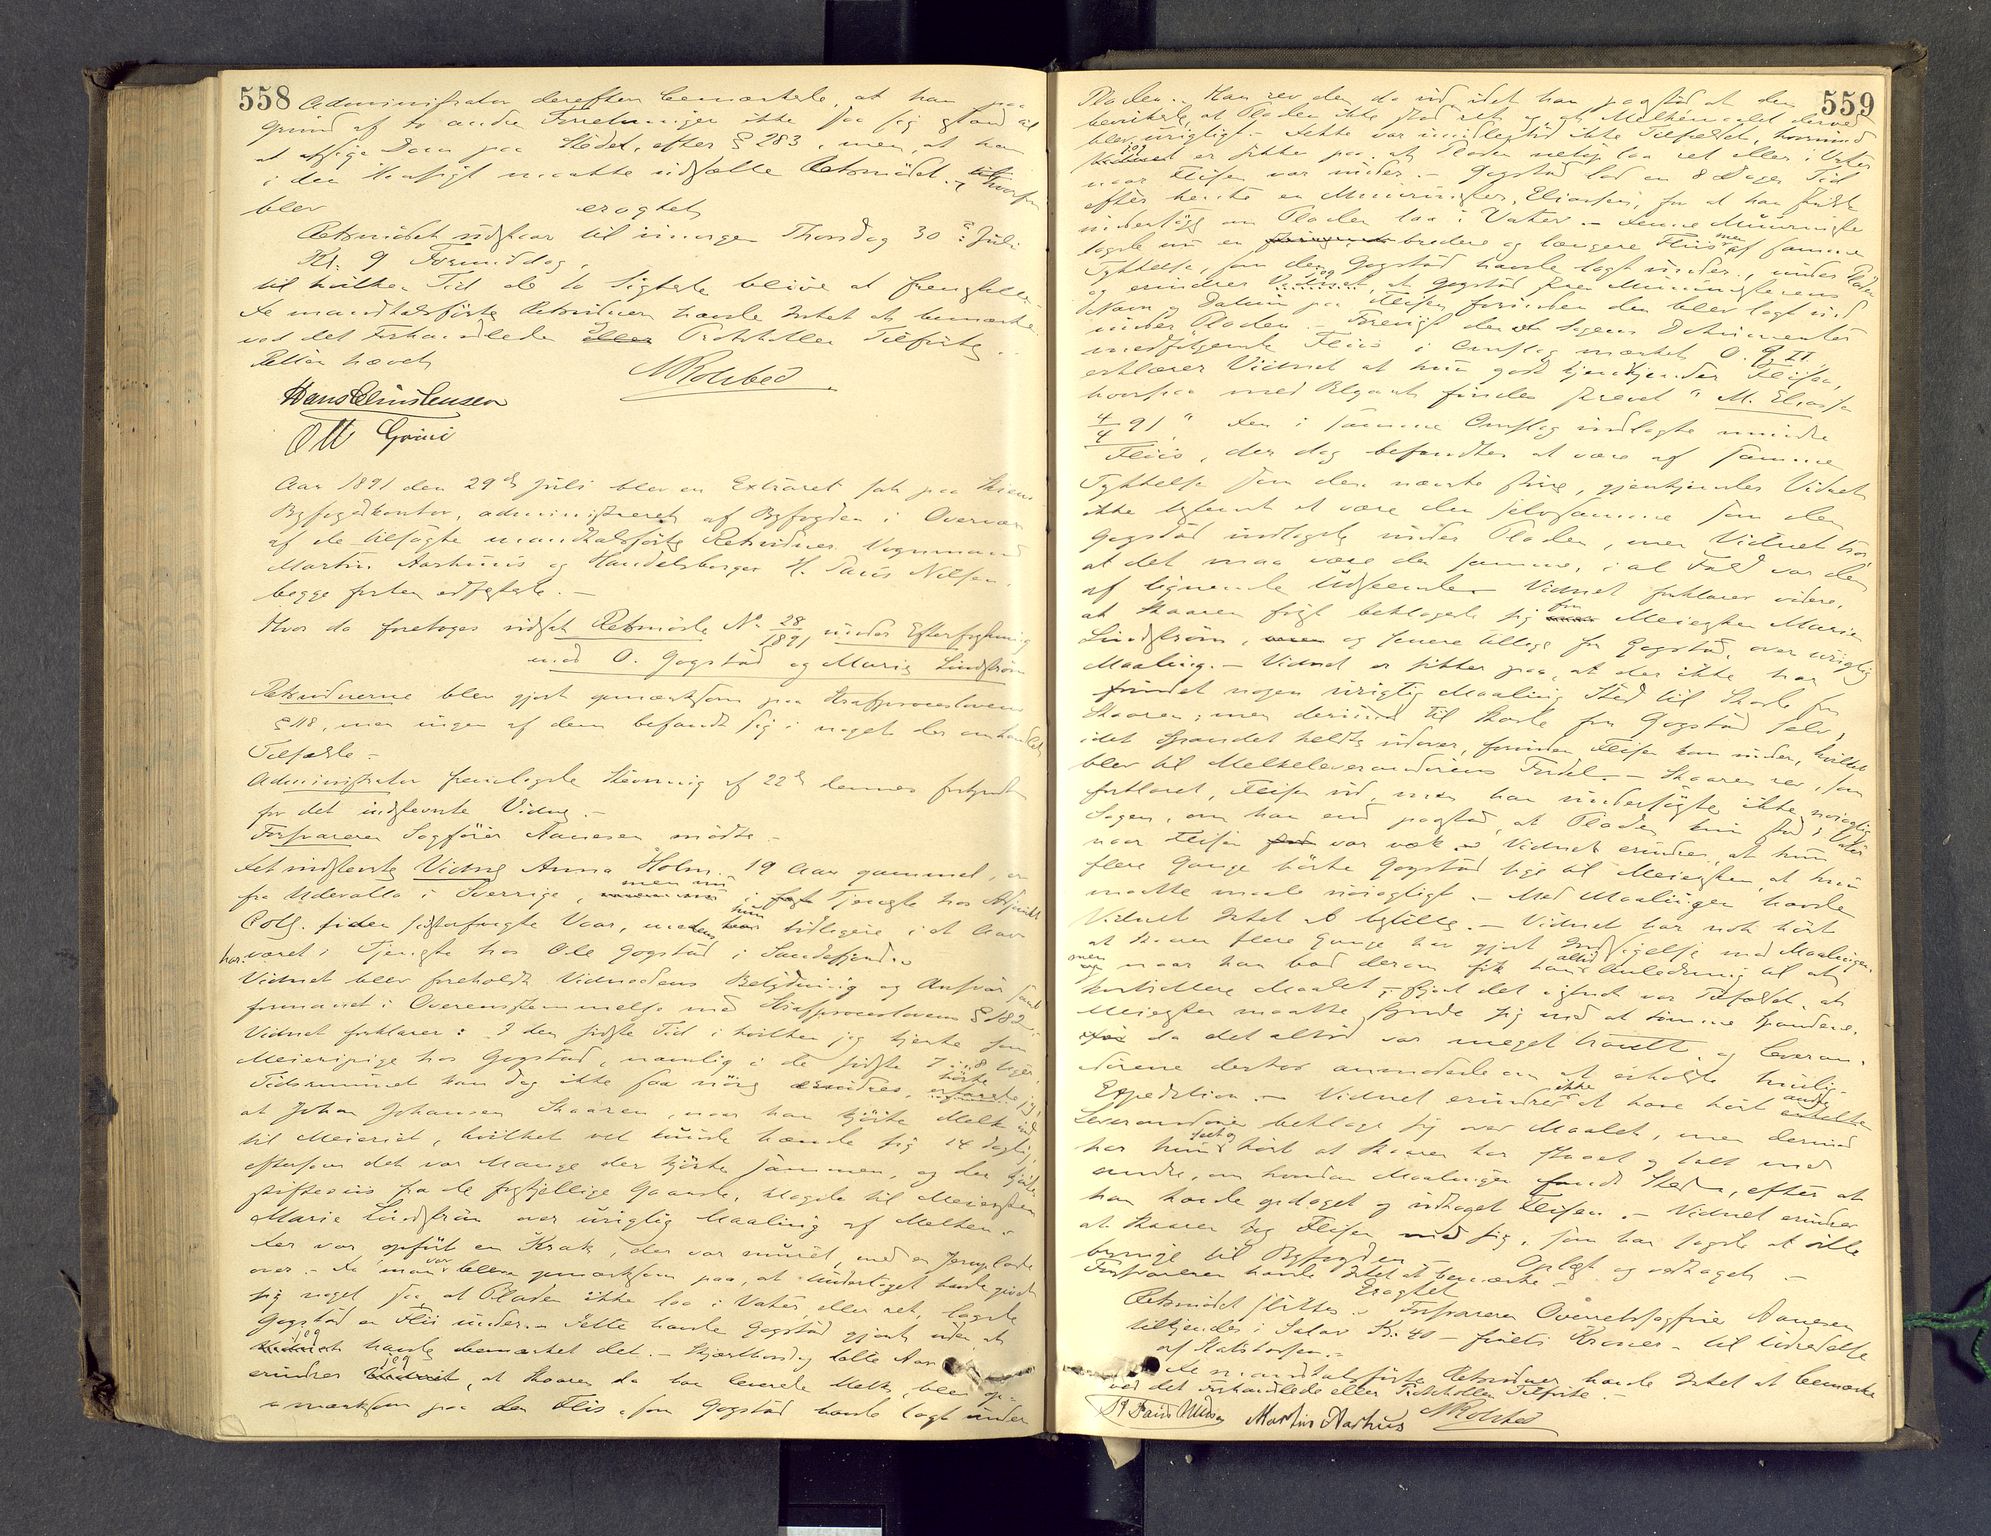 558
Administrator derefter bemærkede, at han paa
Grund af to andre Forretninger ikke saa sig istand til
at afsige Dom paa Stedet, efter § 283, men, at han
i den Hensigt maatte udsætte Retsmødet. hvorfor
blev eragtet
Retsmødet udstaar til imorgen Thorsdag 30 Juli
Kl. 9 Formiddag,
til hvilken Tid de to Sigtede blive at fremstille.
De mandtalsførte Retsvidner havde Intet at bemærke
ved det Forhandlede eller Protokollen Tilførte.
Retten hævet
NRolsted
Hans Christensen
Ott Grini
Aar 1891 den 29de Juli blev en Extraret sat paa Skiens
Byfogedkontor, administreret af Byfogden i Overvær
af de tilsagte mandtalsførte Retsvidner Vognmand
Martin Aarhuus og Handelsborger H. Faus Nilsen,
begge forhen edfæstede. –
Hvor da foretoges vidst Retsmøde No 28/1891 under Efterforskning
mod O. Gogstad og Marie Lindstrøm
Retsvidnerne blev gjort opmærksom paa Strafprocesloven
§ 118, men ingen af dem befandt sig i noget der omhandlet
Tilfælde –
Administrator fremlagde Stevning af 22de dennes forkyndt
for det indstevnte Vidne. –
Forsvareren Sagfører Aanesen mødte –
Det indstevnte Vidne Anna Holm. 19 Aar gammel, er
fra Udevalla i Sverrige, men nu i Tjeneste hos
siden sidstafvigte Vaar, medens hun tidligere i et Aar
har været i Tjeneste hos Ole Gogstad i Sandefjord.
Vidnet blev foreholdt Vidneedens Betydning og Ansvar samt
formanet i Overensstemmelse med Strafprocesloven § 182
Vidnet forklarer: I den sidste Tid i hvilken jeg tjente som
Meieripige hos Gogstad, nemlig i de sidste 7 à 8 Dage,
Tidsrummet kan jeg ikke saa nøie erindre, hørte jeg,
at Johan Johansen Skaaren, naar han kjørte Melk ind
til Meieriet, hvilket vel kunde hænde sig 14 daglig,
eftersom det var Mange der kjørte sammen, og der kjørtes
skiftevis fra de forskjellige Gaarde, klagede til Meiersken
Marie Lindstrøm over urigtig Maaling af Melken.
Der var opført en Krak, der var muret, med en Jernplade
over. – Da man var bleven opmærksom paa, at Underlaget havde givet
sig noget saa at Pladen ikke laa i Vater, eller ret, lagde
Gogstad en Flis under. – Dette havde Gogstad gjort uden at
jeg havde bemærket det.
erindrer jeg, at Skaaren da han leverede Melk, blev op-
mærksom paa den Flis, som Gogstad havde lagt under
559
Pladen. Han rev den da ud idet han paastod at den
bevirkede, at Pladen ikke stod ret og at Melkemaalet derved
blev urigtigt. – Dette var imidlertid ikke Tilfældet, hvorimod
jeg er sikker paa, at Pladen netop laa ret eller i Vater
naar Flisen var under. – Gogstad lod en 8 Dages Tid
efter hente en Murmester, Eliassen, for at han skulde
undersøge om Pladen laa i Vater. – Denne Murmester
lagde nu en bredere og længere Fliis men af samme
Tykkelse, som den Gogstad havde lagt under, under Pladen
og erindrer jeg, at Gogstad skrev Murmesterens
Navn og Datum paa Flisen forinden den blev lagt ind
under Pladen. – Forevist den Sagens Dokumenter
medfølgende Fliis i Omslag mærket O. G II.
erklærer Vidnet at hun godt gjenkjender Flisen,
hvorpaa med Blyant findes skrevet "M. Eliassen
4/4 91". Den i samme Omslag indlagte mindre
Fliis, der dog befandtes at være af samme
Tykkelse som den næste større, gjenkjendes Vidnet
ikke bestemt at være den selvsamme som den
Gogstad indlagde under Pladen, men Vidnet tror
at det maa være den samme, i al Fald var den
af lignende Udseende. Vidnet forklarer videre,
at Skaaren først beklagede sig for Meiersken Marie
Lindstrøm, og senere tillige for Gogstad, over urigtig
Maaling. – Vidnet er sikker paa, at der ikke har
fundet nogen urigtig Maaling Sted til Skade for
Skaaren; men derimod til Skade for Gogstad selv,
idet Spandet heldte udover, forinden Flisen kom under, hvilket
blev til Melkeleverandørens Fordel. – Skaaren rev, som
forklaret, Flisen ud, men han undersøgte ikke nøiagtig
Sagen, om han end paastod, at Pladen kun stod i Vater
naar Flisen var væk. – Vidnet erindrer, at hun
flere Gange hørte Gogstad sige til Meiersken, at hun
maatte maale nøiagtigt. – Med Maalingen havde
Vidnet Intet at bestille. – Vidnet har nok hørt
at Skaaren flere Gange har gjort Indsigelse mod Maalingen,
men naar han bad derom fik han altid Anledning til at
kontrollere Maalet, skjønt det ogsaa var Tilfældet, at
Meiersken maatte skynde sig med at tømme Spandene,
da det altid var meget travlt, og Leveran-
dørene derhos anmodede om at erholde hurtig
Expedition. – Vidnet erindrer ikke at have hørt andre
Leverandører beklage sig over Maalet, men derimod
har hun seet og hørt at Skaaren har staaet og talt med
andre, om hvordan Maalingen fandt Sted, efter at
han havde opdaget og udtaget Flisen. – Vidnet erindrer
at Skaaren tog Flisen med sig, som han sagde at ville
bringe til Byfogden – Oplæst og vedtaget –
Forsvareren havde Intet at bemærke –
Eragtet
Retsmødet sluttes. – Forsvareren Overretssagfører Aanesen
tilkjendes i Salær Kr. 40 – firti Kroner – til Udredelse
af Statskassen. –
De mandtalsførte Retsvidner havde Intet at bemærke
ved det Forhandlede eller Protokollen Tilførte. –
H Faus Nilsen Martin Aarhus NRolsted